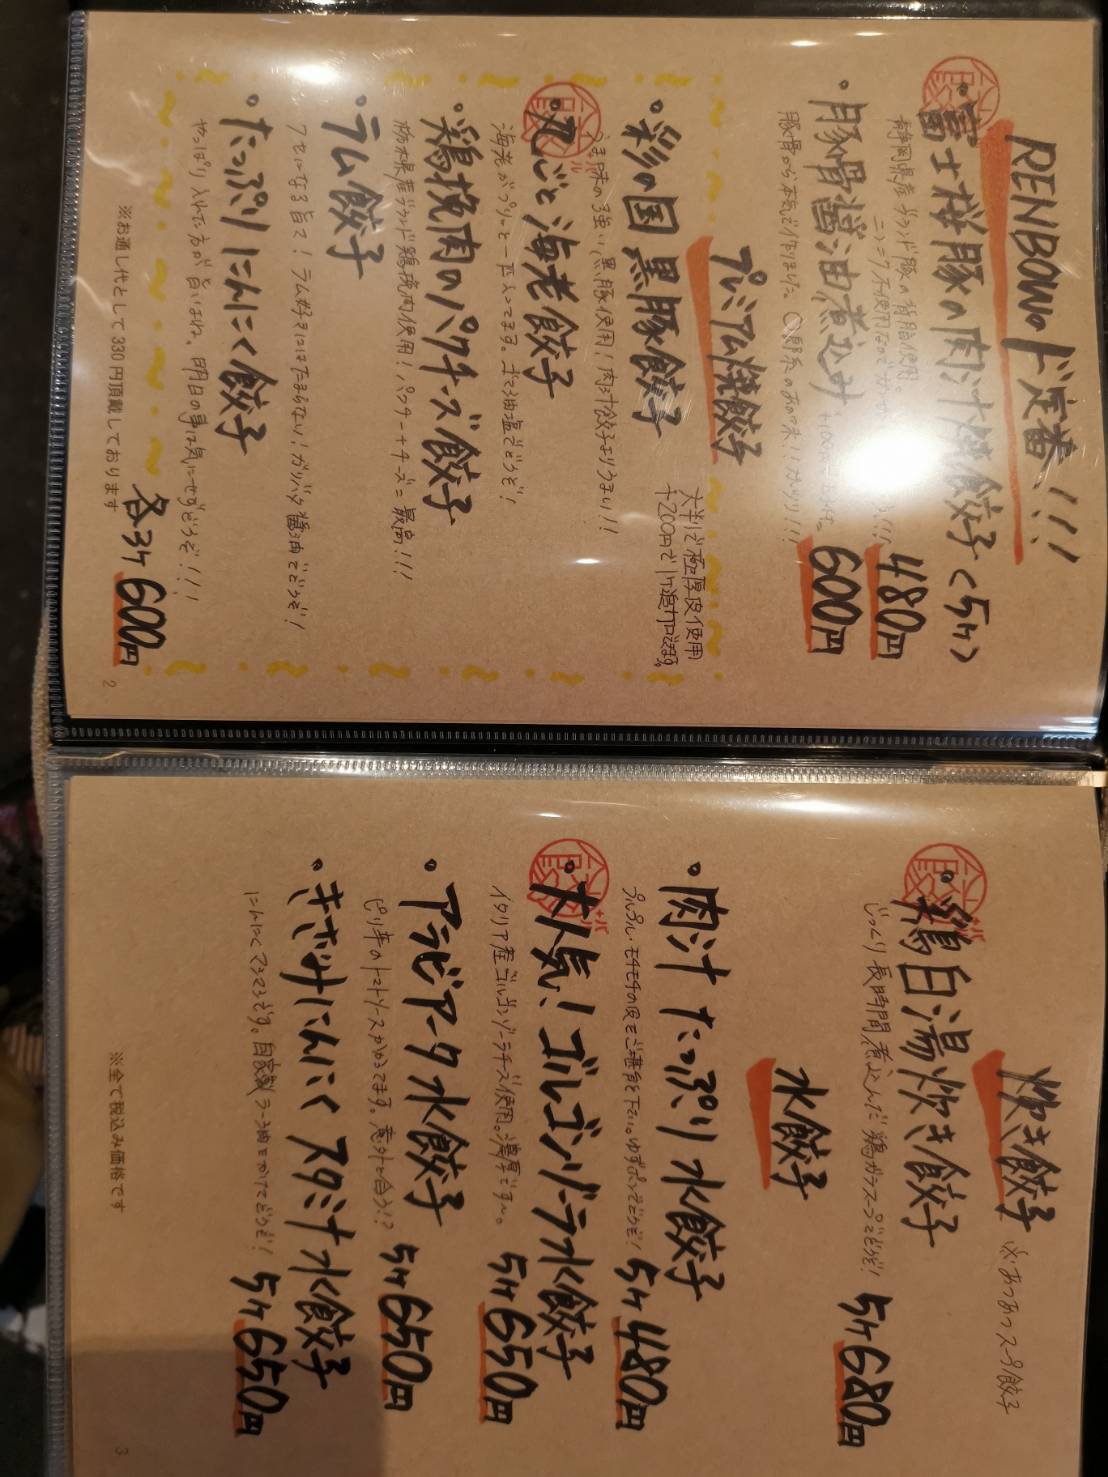 RENBOWのド定番!!!
・富士桜豚の肉汁焼餃子<5ケ>
静岡県産ブランド豚の背脂使用。
ニンニク不使用なので
480円
・豚骨醤油煮込み
600円
豚骨から本気で作りました。○○野系のあの味!!ガッツリ!!!
プレミアム焼餃子
大判で極厚皮使用
+200円で1ケ追加できます。
・彩の国 黒豚餃子
うま味の強い黒豚使用!肉汁餃子よりうまい!!
・丸ごと海老餃子
海老がプリッと一匹入ってます。ゴマ油塩でどうぞ!
・鶏挽肉のパクチーズ餃子
栃木県産ブランド鶏挽肉使用!パクチー+チーズ=最高!!!
・ラム餃子
クセになる旨さ!ラム好きにはたまらない!ガリバタ醤油でどうぞ!
・たっぷりにんにく餃子
やっぱり入れた方が旨いよね。明日の事は気にせずどうぞ!!!
各3ケ600円
※お通し代として330円頂戴しております
2
炊き餃子
※あつあつスープ餃子
・鶏白湯炊き餃子
じっくり長時間煮込んだ鶏ガラスープでどうぞ!
5ケ680円
水餃子
・肉汁たっぷり水餃子
プルプル・モチモチの皮をご堪能下さい。ゆずポンでどうぞ!
5ケ480円
・大人気!ゴルゴンゾーラ水餃子
イタリア産ゴルゴンゾーラチーズ使用。濃厚です〜。
5ケ650円
・アラビアータ水餃子
ピリ辛のトマトソースがかかってます。意外と合う!?
5ケ650円
・きざみにんにくスタミナ水餃子
にんにくマシマシです。自家製ラー油をかけてどうぞ!
5ケ650円
※全て税込み価格です
3